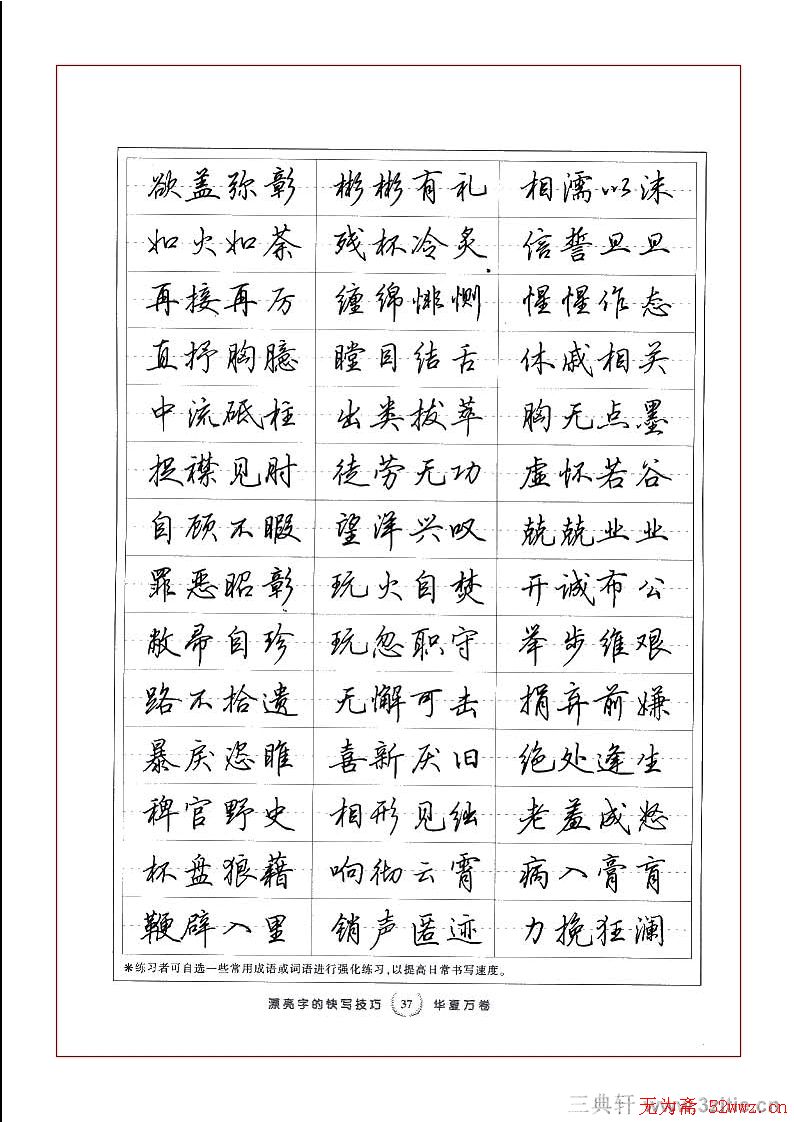 欲盖弥彰 彬彬有礼 相濡以沫
如火如荼 残杯冷炙 信誓旦旦
再接再厉 缠绵悱恻 惺惺作态
直抒胸臆 瞠目结舌 休戚相关
中流砥柱 出类拔萃 胸无点墨
捉襟见肘 徒劳无功 虚怀若谷
自顾不暇 望洋兴叹 兢兢业业
罪恶昭彰 玩火自焚 开诚布公
敝帚自珍 玩忽职守 举步维艰
路不拾遗 无懈可击 捐弃前嫌
暴戾恣睢 喜新厌旧 绝处逢生
稗官野史 相形见绌 老羞成怒
杯盘狼藉 响彻云霄 病入膏肓
鞭辟入里 销声匿迹 力挽狂澜
※练习者可自选一些常用成语或词语进行强化练习,以提高日常书写速度。
漂亮字的快写技巧 37 华夏万卷
三典轩
无为斋 52wwz.cn